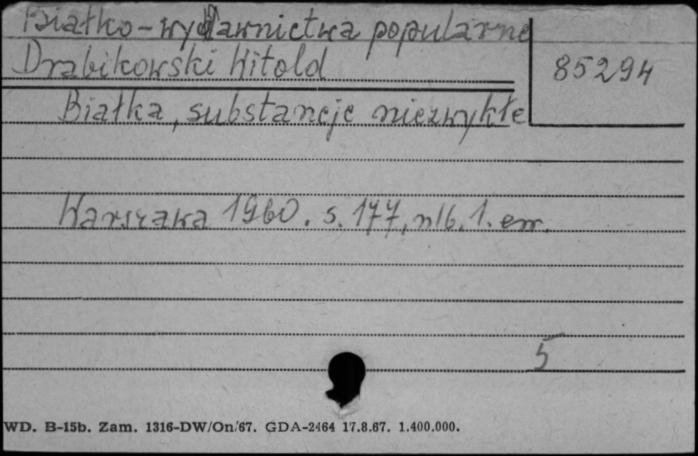 Białko-wydawnictwa popularne
Drabikowski Witold
85294
Białka, substancje niezwykłe
Warszawa 1960. s. 177, nlb. 1. err.
5
WD. B-15b. Zam. 1316-DW/On/67. GDA-2464 17.8.67. 1.400.000.